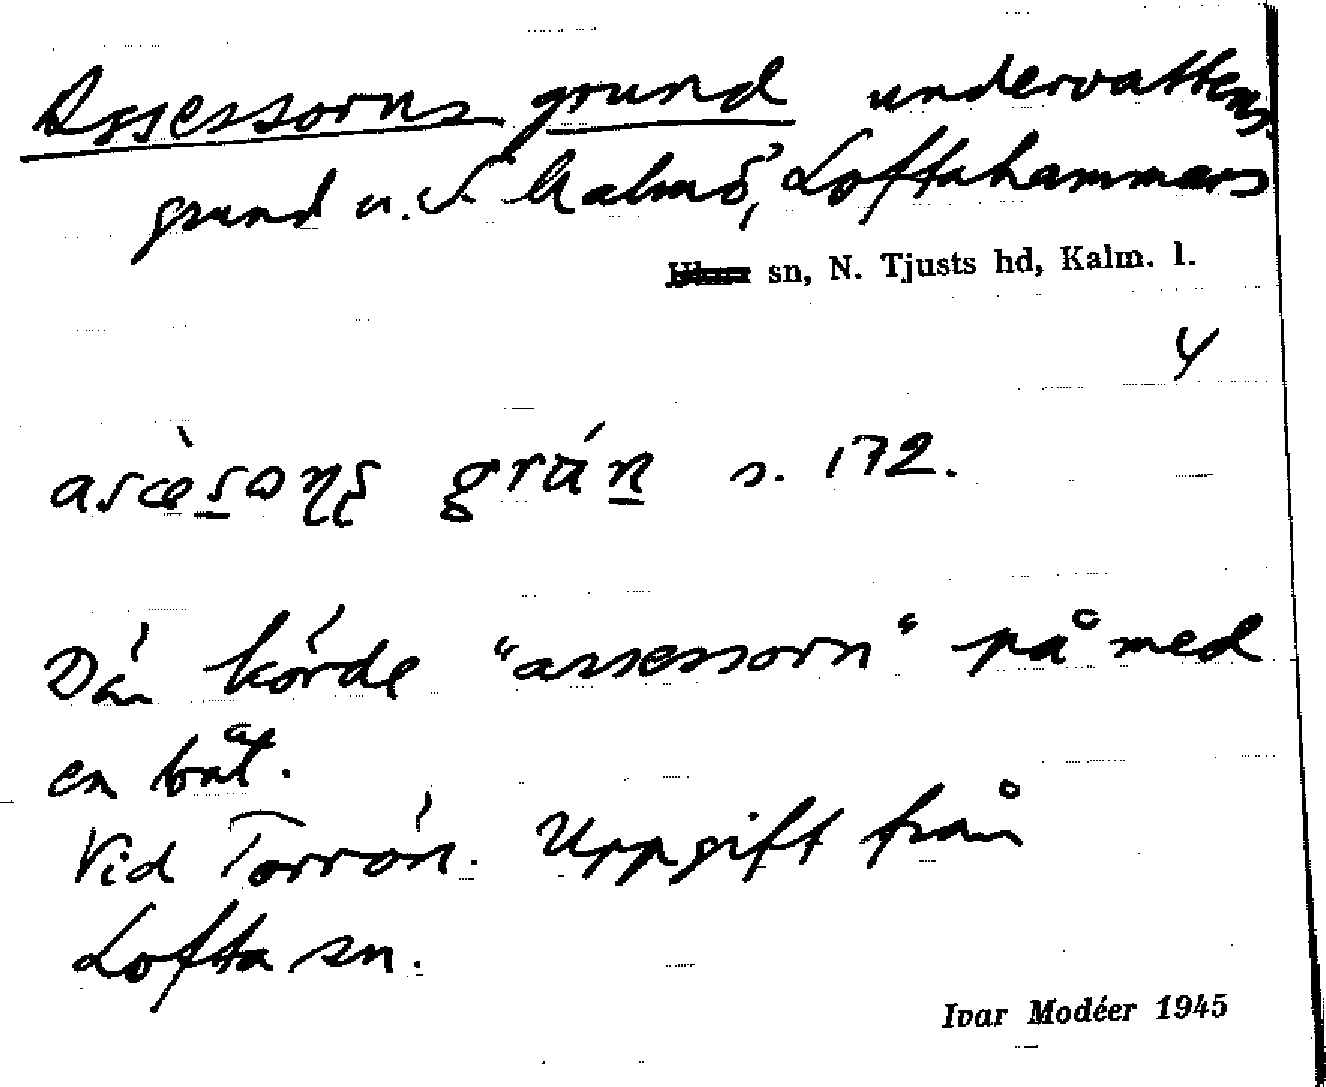 Assessorns grund undervattens-
grund u. S Malmö, Loftahammars
sn, N. Tjusts hd, Kalm. l.
4
grún s. 172.
Där körde "assessorn" på med
en båt.
Vid Torrön. Uppgift från
Lofta sn.
Ivar Modéer 1945